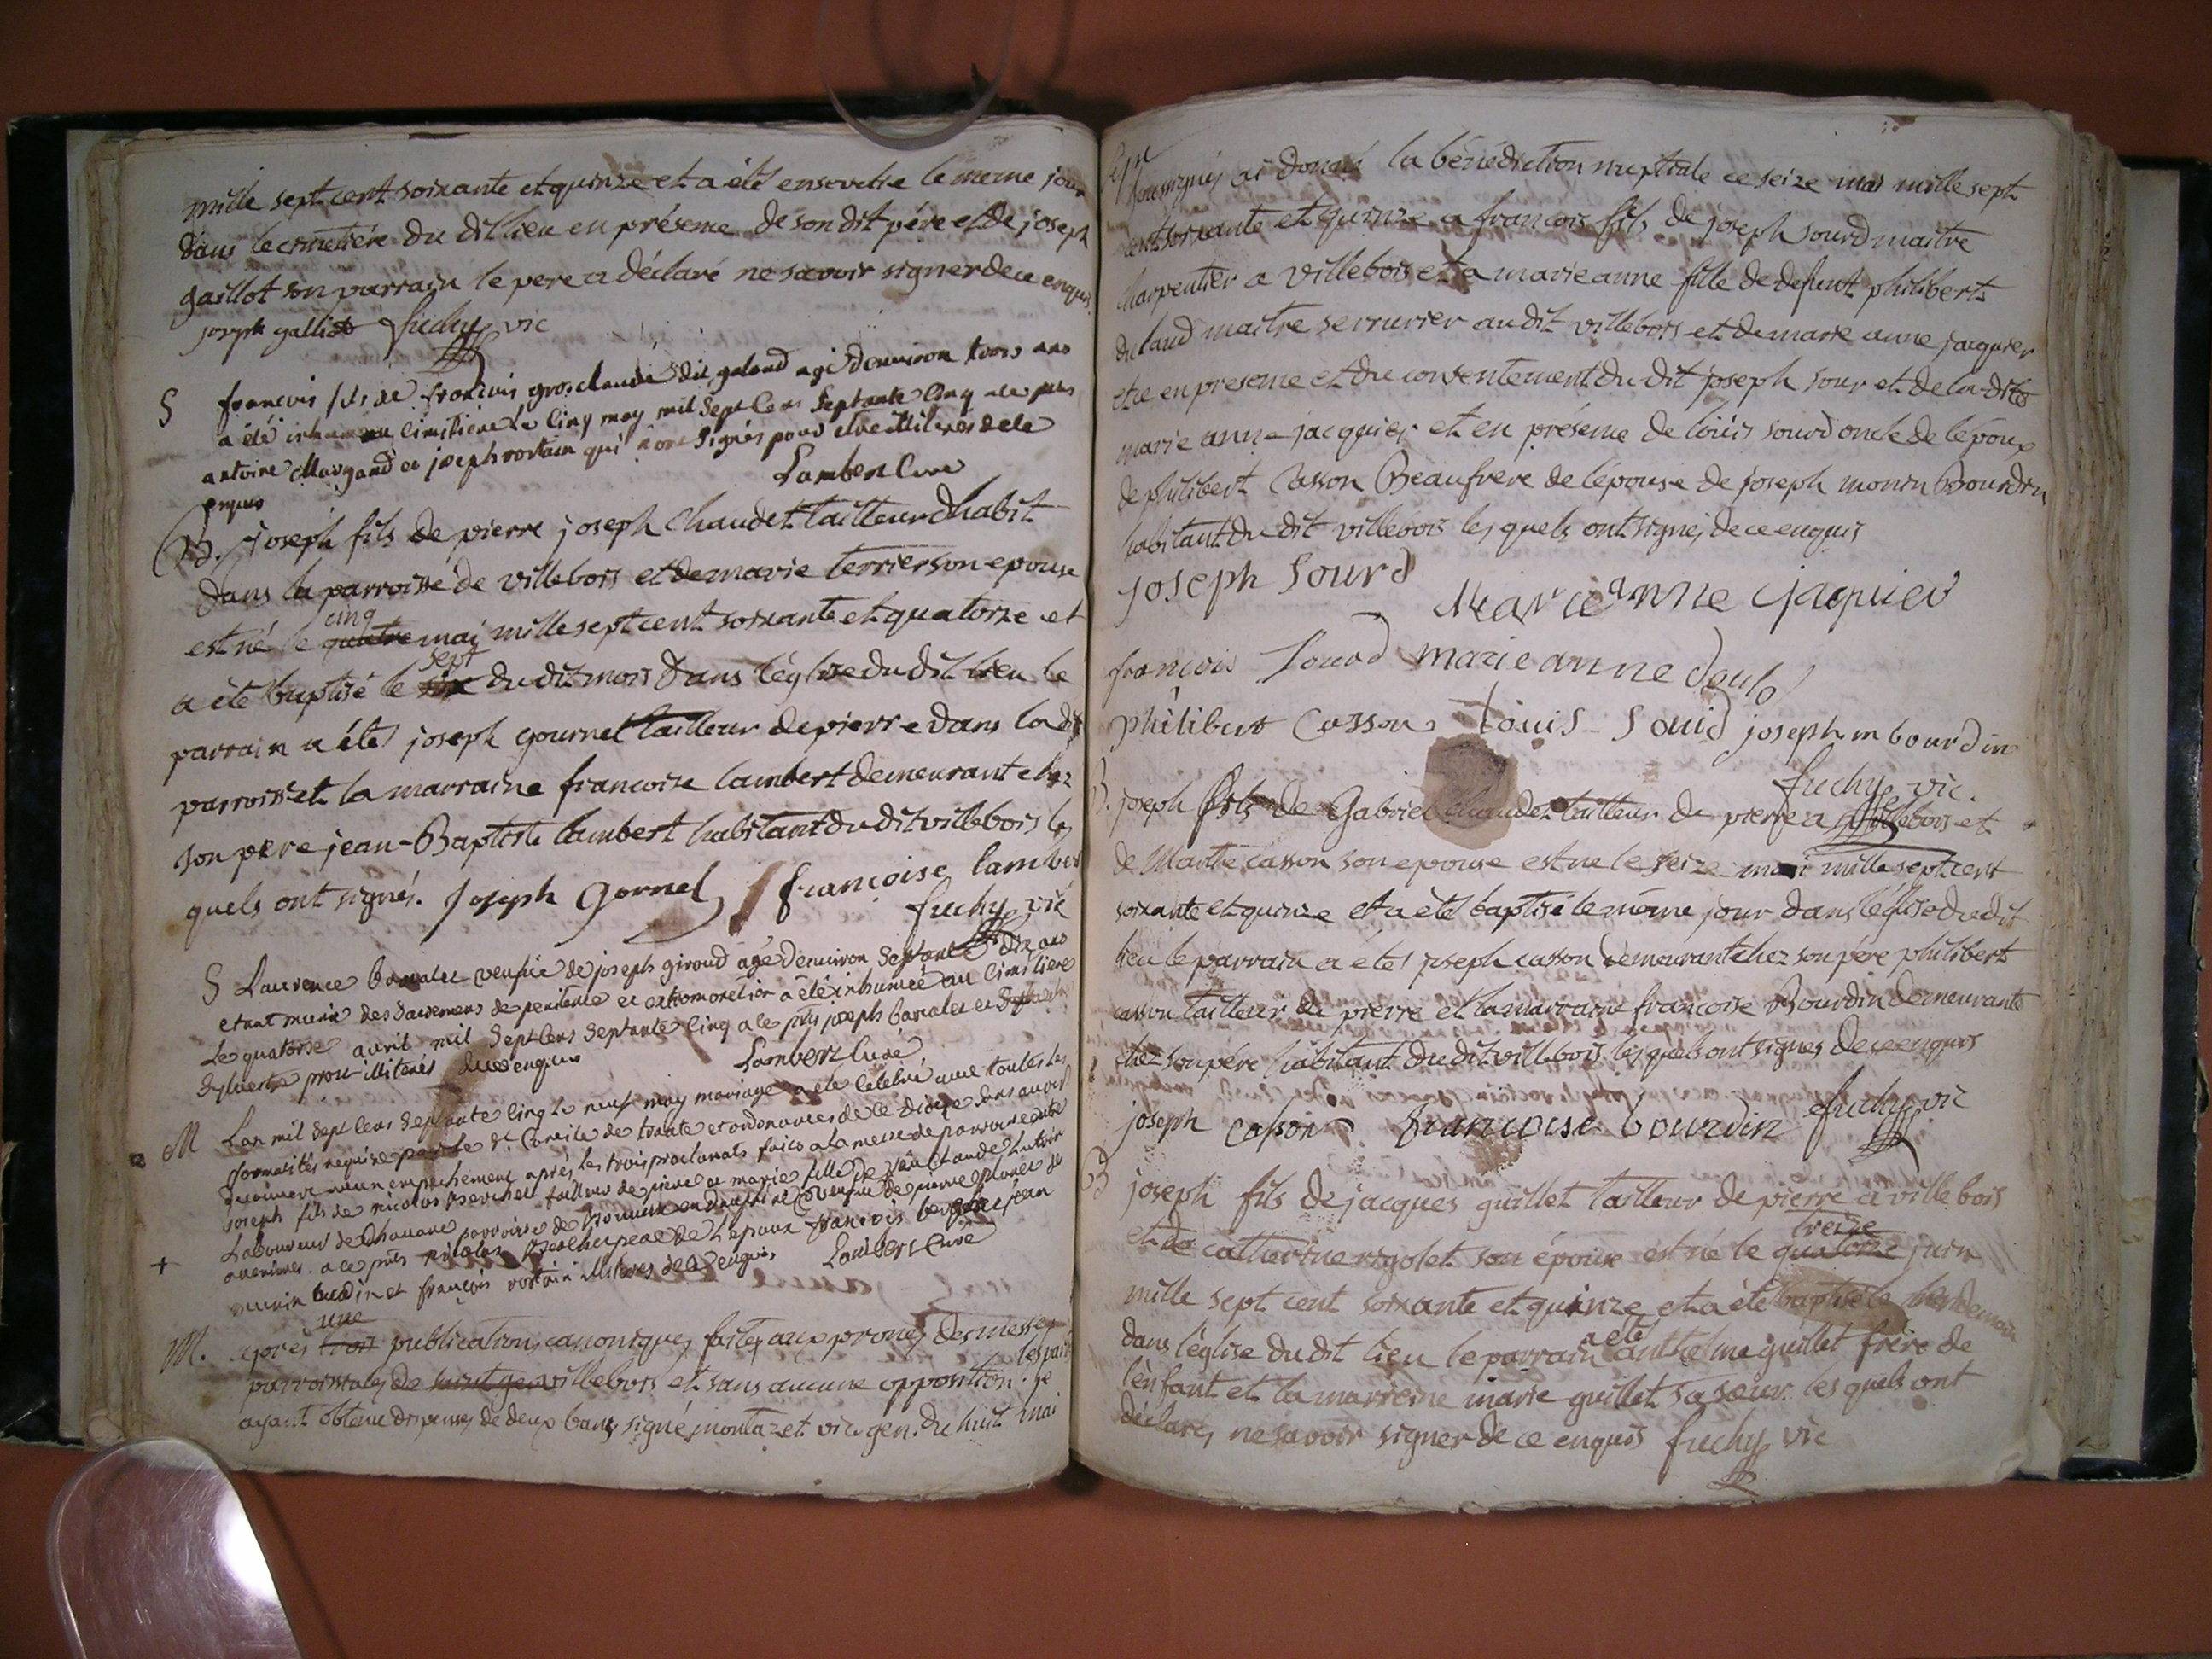 mille sept cent soixante et quinze et a été ensevelie le meme jour
dans le cimetière du dit lieu en présence de son dit père et de joseph
gaillot son parrain le pere a déclaré ne savoir signer de ce enquis
joseph galliot fuchy vic
S francois fils de francois grosclaude dit galand agé denviron trois ans
a été inhumé au cimitiere le cinq may mil sept cens septante cinq
antoine Margand et joseph rostain qui n'ont signés pour etre illiterés de ce
enquis Lambert Curé
B. joseph fils de pierre joseph Chaudet tailleur dhabit
dans la parroisse de villebois et de marie terrier son epouse
cinq
est né le quatre mai mille sept cent soixante et quatorze et
sept
a été baptisé le six du dit mois dans l'église du dit lieu le
parrain a été joseph gournel tailleur de pierre dans la dit
parroisse et la marraine francoise lambert demeurant chez
son pere jean-Baptiste lambert habitant du dit villebois les
quels ont signés. Joseph Gornel françoise lambert
fuchy vic
S Laurence veufue de joseph giroud agé denuiron septante dix ans
etant munie des sacremens de penitence et extremonction a été inhumée au cimitiere
Le quatorse auril mil sept cens septante cinq a ce pnts joseph et
Sylvestre pour illiterés de ce enquis Lambert Curé
M Lan mil sept cens septante cinq le neuf may mariage a été celebré auec toutes les
formalités requise par le St Concile de trante et ordonances de ce diocese sans auoir
decouuert aucun empechement après les trois proclamats faits a la messe de parroisse entre
joseph fils de nicolas tailleur de piere et marie fille de Claude
Laboureur de parroisse de en dauphiné et veufue de pierre
a ce pnts nicolas pere de Lepoux francois et jean
et françois rostain illiterés de ce enquis Lambert Curé
une
M. après trois publication canoniques faites aux prones des messes
parroissiales de saint villebois et sans aucune opposition les parties
ayant obtenu dispenses de deux bans signé montazet vic gen. du huit mai je
soussignés ai donné la bénédiction nuptiale ce seize mai mille sept
cent soixante et quinze a francois fils de joseph sourd maitre
charpentier a villebois et a marie anne fille de defunt philibert
dulaud maitre serrurier au dit villebois et de marie anne jacquier
et ce en présence et du consentement du dit joseph sour et de la dite
marie anne jacquier et en présence de loüis sourd oncle de lépoux
de philibert Casson Beaufrere de lépouse de joseph monin Bourdin
habitant du dit villebois les quels ont signés de ce enquis
joseph Sourd Marie anne jaquier
francois Sourd marie anne
philibert Casson Louis Sourd joseph m bourdin
fuchy vic.
B. joseph fils de Gabriel chaudet tailleur de pierre a villebois et
de Marthe casson son epouse est né le seize mai mille sept cent
soixante et quinze et a été baptisé le même jour dans l'église du dit
lieu le parrain a été joseph casson demeurant chez son père philibert
casson tailleur de pierre et la marraine francoise Bourdin demeurante
chez son père habitant du dit villebois les quels ont signés de ce enquis
joseph casson francoise bourdin fuchy vic
B joseph fils de jacques guillet tailleur de pierre a villebois
treize
et de catherine rigolet son épouse est né le quatorze juin
mille sept cent soixante et quinze et a été baptisé le lendemain
a été
dans l'église du dit lieu le parrain anthelme guillet frère de
l'enfant et la marreine marie guillet sa sœur les quels ont
déclarés ne savoir signer de ce enquis fuchy vic